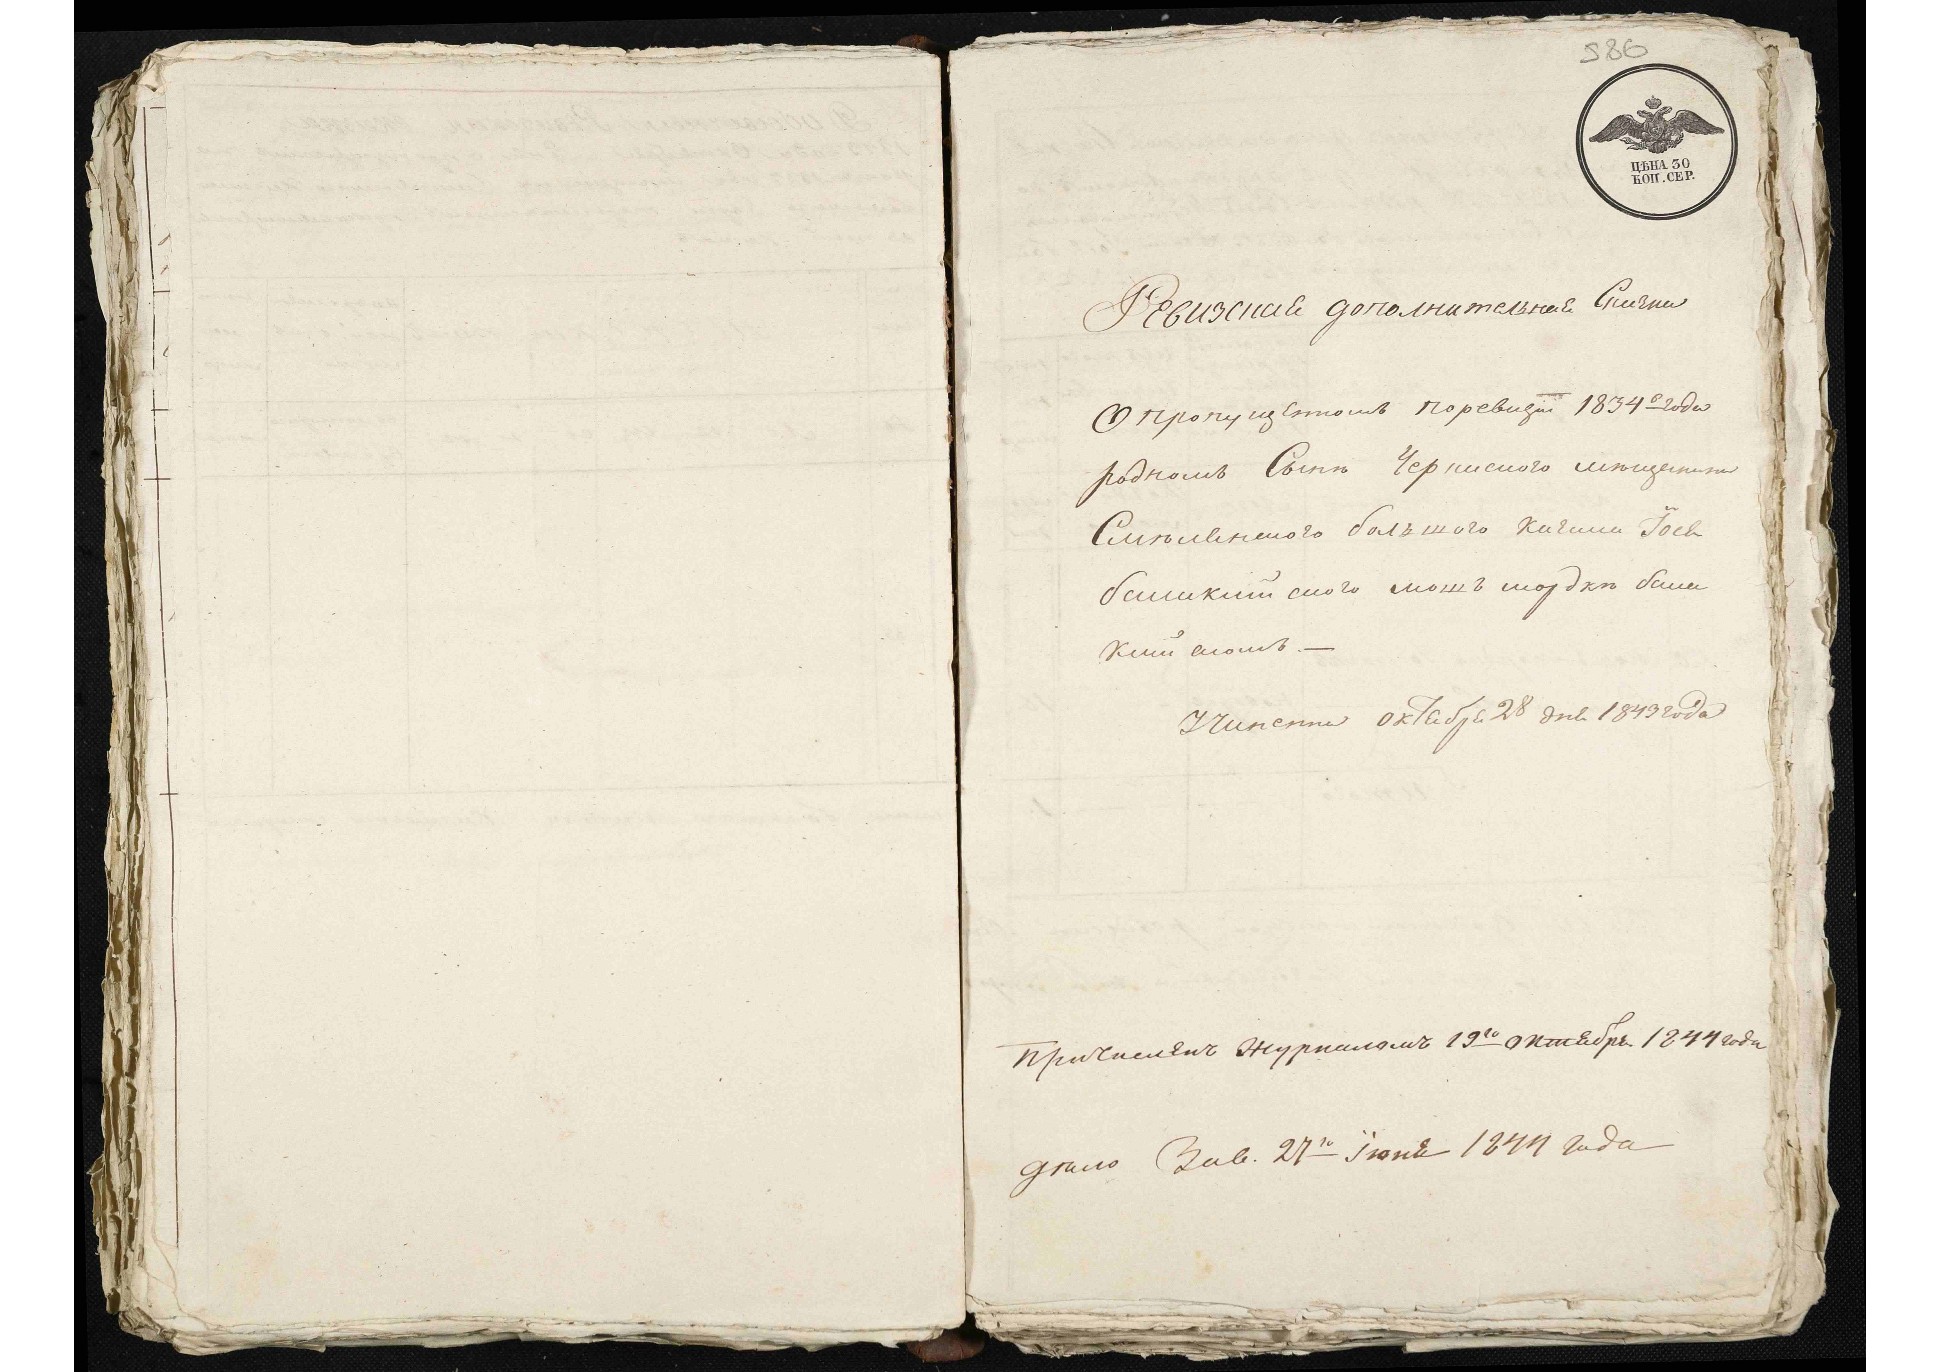 586
ЦѢНА 30
КОП. СЕР.
Ревизская дополнительная Скаска
О пропущенномъ поревизіи 1834го года
родномъ Сынѣ Черкаского мещанина
Смѣлянского большого кагала Іось
башкий ского мошъ мордкѣ баш
кий скомъ. —
Учинена октября 28 дня 1843 года
Причисленъ журналомъ 19го октября 1844 года
дѣло Зав. 27го Іюня 1844 года